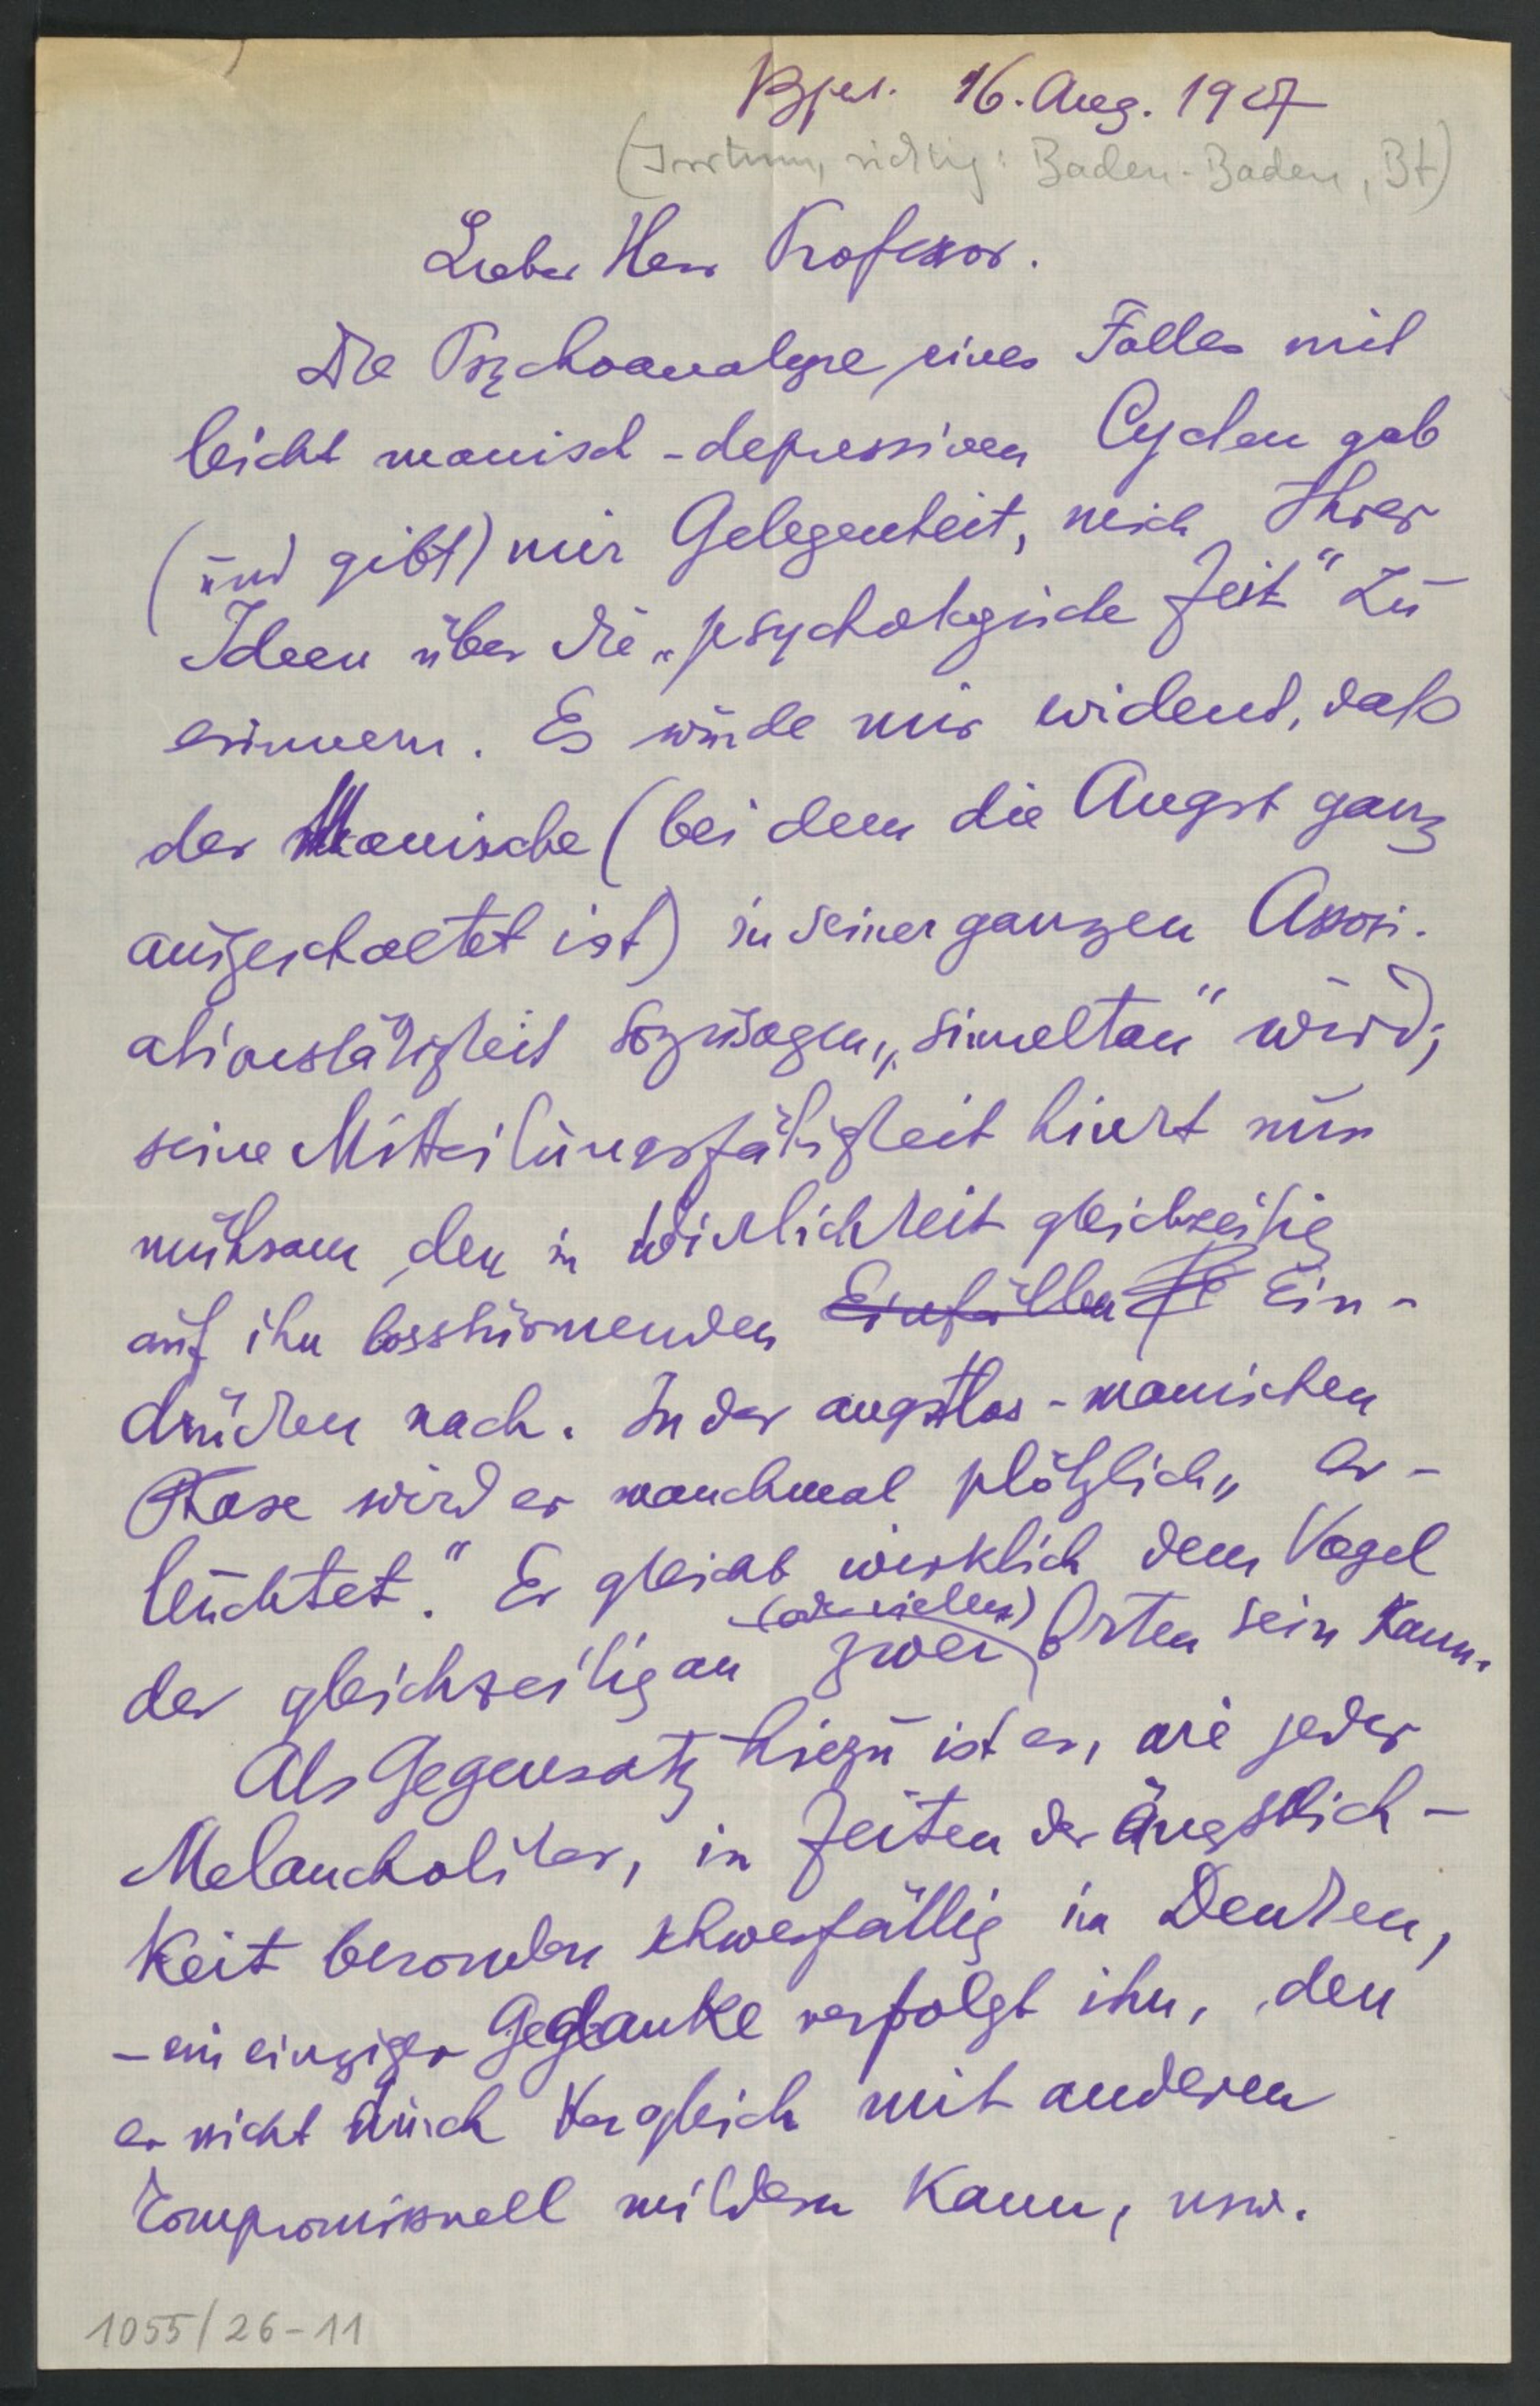 Bpest. 16. Aug. 1927
(Irrtum, richtig: Baden-Baden, Bt)
Lieber Herr Professor.
Die Psychoanalyse eines Falles mit
leicht manisch-depressiven Cyclen gab
(und gibt) mir Gelegenheit, mich Ihrer
Ideen über die „psychologische Zeit“ zu
erinnern. Es wurde mir evident, daß
der Manische (bei dem die Angst ganz
ausgeschaltet ist) in seiner ganzen Assozi-
ationstätigkeit sozusagen „simultan“ wird;
seine Mitteilungsfähigkeit hinkt nun
mühsam den in Wirklichkeit gleichzeitig
auf ihn losstürmenden Einfällen Ein-
drücken nach. In der angstlos-manischen
Phase wird er manchmal plötzlich „er-
leuchtet.“ Er gleicht wirklich dem Vogel
der gleichzeitig an zwei (oder vielen) Orten sein kann.
Als Gegensatz hiezu ist er, wie jeder
Melancholiker, in Zeiten der Ängstlich-
keit besonders schwerfällig im Denken,
- ein einziger Gedanke verfolgt ihn, den
er nicht durch Vergleich mit anderen
kompromissuell mildern kann, usw.
1055/26-11